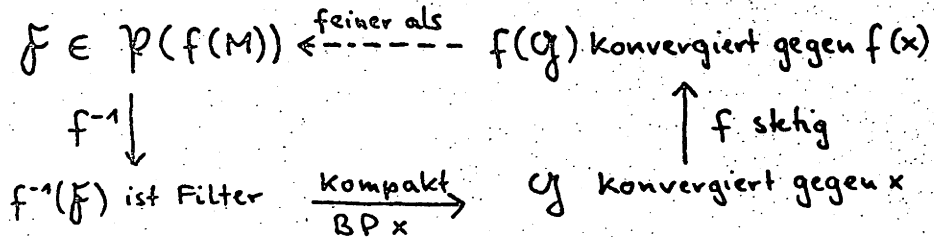 𝔉 ∈ 𝔓(f(M)) feiner als f(𝔊) konvergiert gegen f(x)
f⁻¹ f stetig
f⁻¹(𝔉) ist Filter kompakt BP x 𝔊 konvergiert gegen x